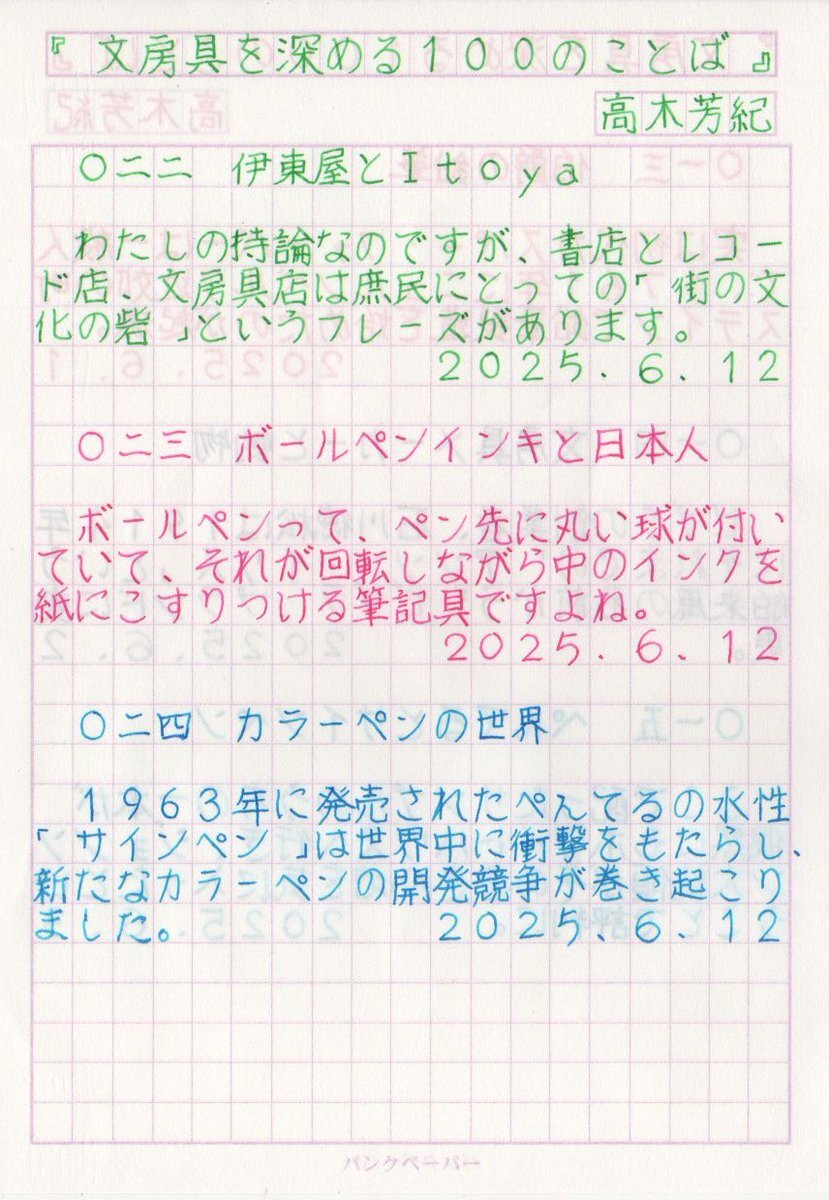 『文房具を深める100のことば』
高木芳紀
〇二二 伊東屋とItoya
わたしの持論なのですが、書店とレコー
ド店、文房具店は庶民にとっての「街の文
化の砦」というフレーズがあります。
2025.6.12
〇二三 ボールペンインキと日本人
ボールペンって、ペン先に丸い球が付い
ていて、それが回転しながら中のインクを
紙にこすりつける筆記具ですよね。
2025.6.12
〇二四 カラーペンの世界
1963年に発売されたぺんてるの水性
「サインペン」は世界中に衝撃をもたらし、
新たなカラーペンの開発競争が巻き起こり
ました。 2025.6.12
バンクペーパー